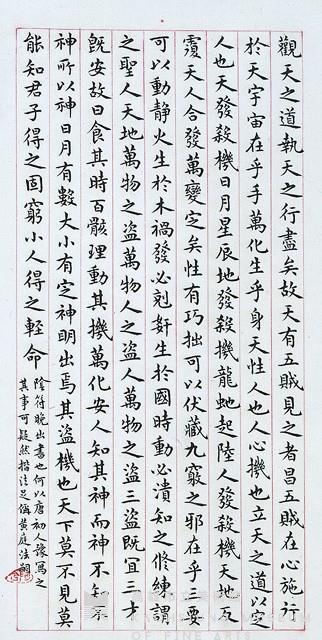 觀天之道執天之行盡矣故天有五賊見之者昌五賊在心施行
於天宇宙在乎手萬化生乎身天性人也人心機也立天之道以定
人也天發殺機日月星辰地發殺機龍虵起陸人發殺機天地反
覆天人合發萬變定矣性有巧拙可以伏藏九竅之邪在乎三要
可以動靜火生於木禍發必剋姧生於國時動必潰知之修練謂
之聖人天地萬物之盜萬物人之盜人萬物之盜三盜既宜三才
既安故曰食其時百骸理動其機萬化安人知其神而神不知不
神所以神日月有數大小有定神明出焉其盜機也天下莫不見莫
能知君子得之固窮小人得之輕命
陰符晚出書也何以唐初人豫寫之
其事可疑然楷法足備黃庭法嗣
OF FINE ARTS